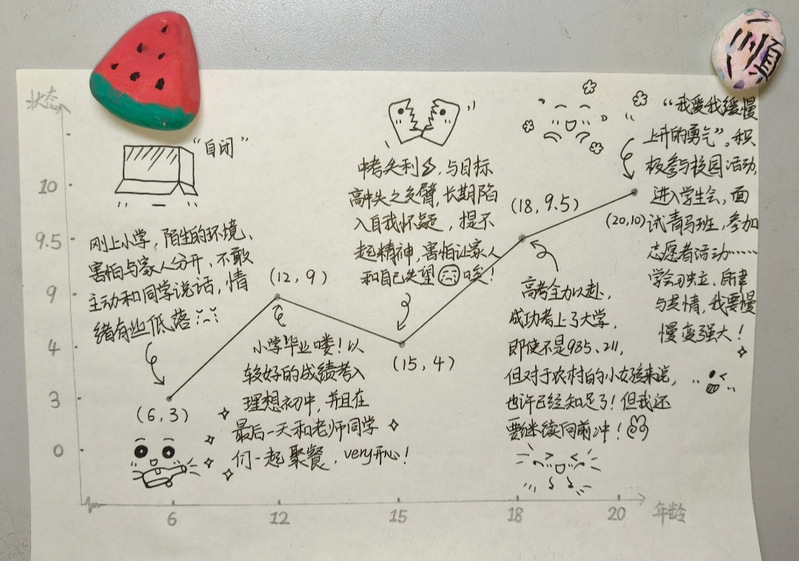 状态
10
9.5
9
4
3
0
6
12
15
18
20
年龄
"自闭"
刚上小学,陌生的环境、
害怕与家人分开,不敢
主动和同学说话,情
绪有些低落
(6,3)
(12,9)
小学毕业喽!以
较好的成绩考入
理想初中,并且在
最后一天和老师同学
们一起聚餐,very开心!
中考失利,与目标
高中失之交臂,长期陷
入自我怀疑,提不
起精神,害怕让家人
和自己失望 唉!
(15,4)
(18,9.5)
高考全力以赴,
成功考上了大学,
即使不是985、211,
但对于农村的小女孩来说,
也许已经知足了!但我还
要继续向前冲!
(20,10)
"我爱我缓慢
上升的勇气"。积
极参与校园活动,
进入学生会,面
试青马班,参加
志愿者活动……
学会独立、自律
与共情,我要慢
慢变强大!